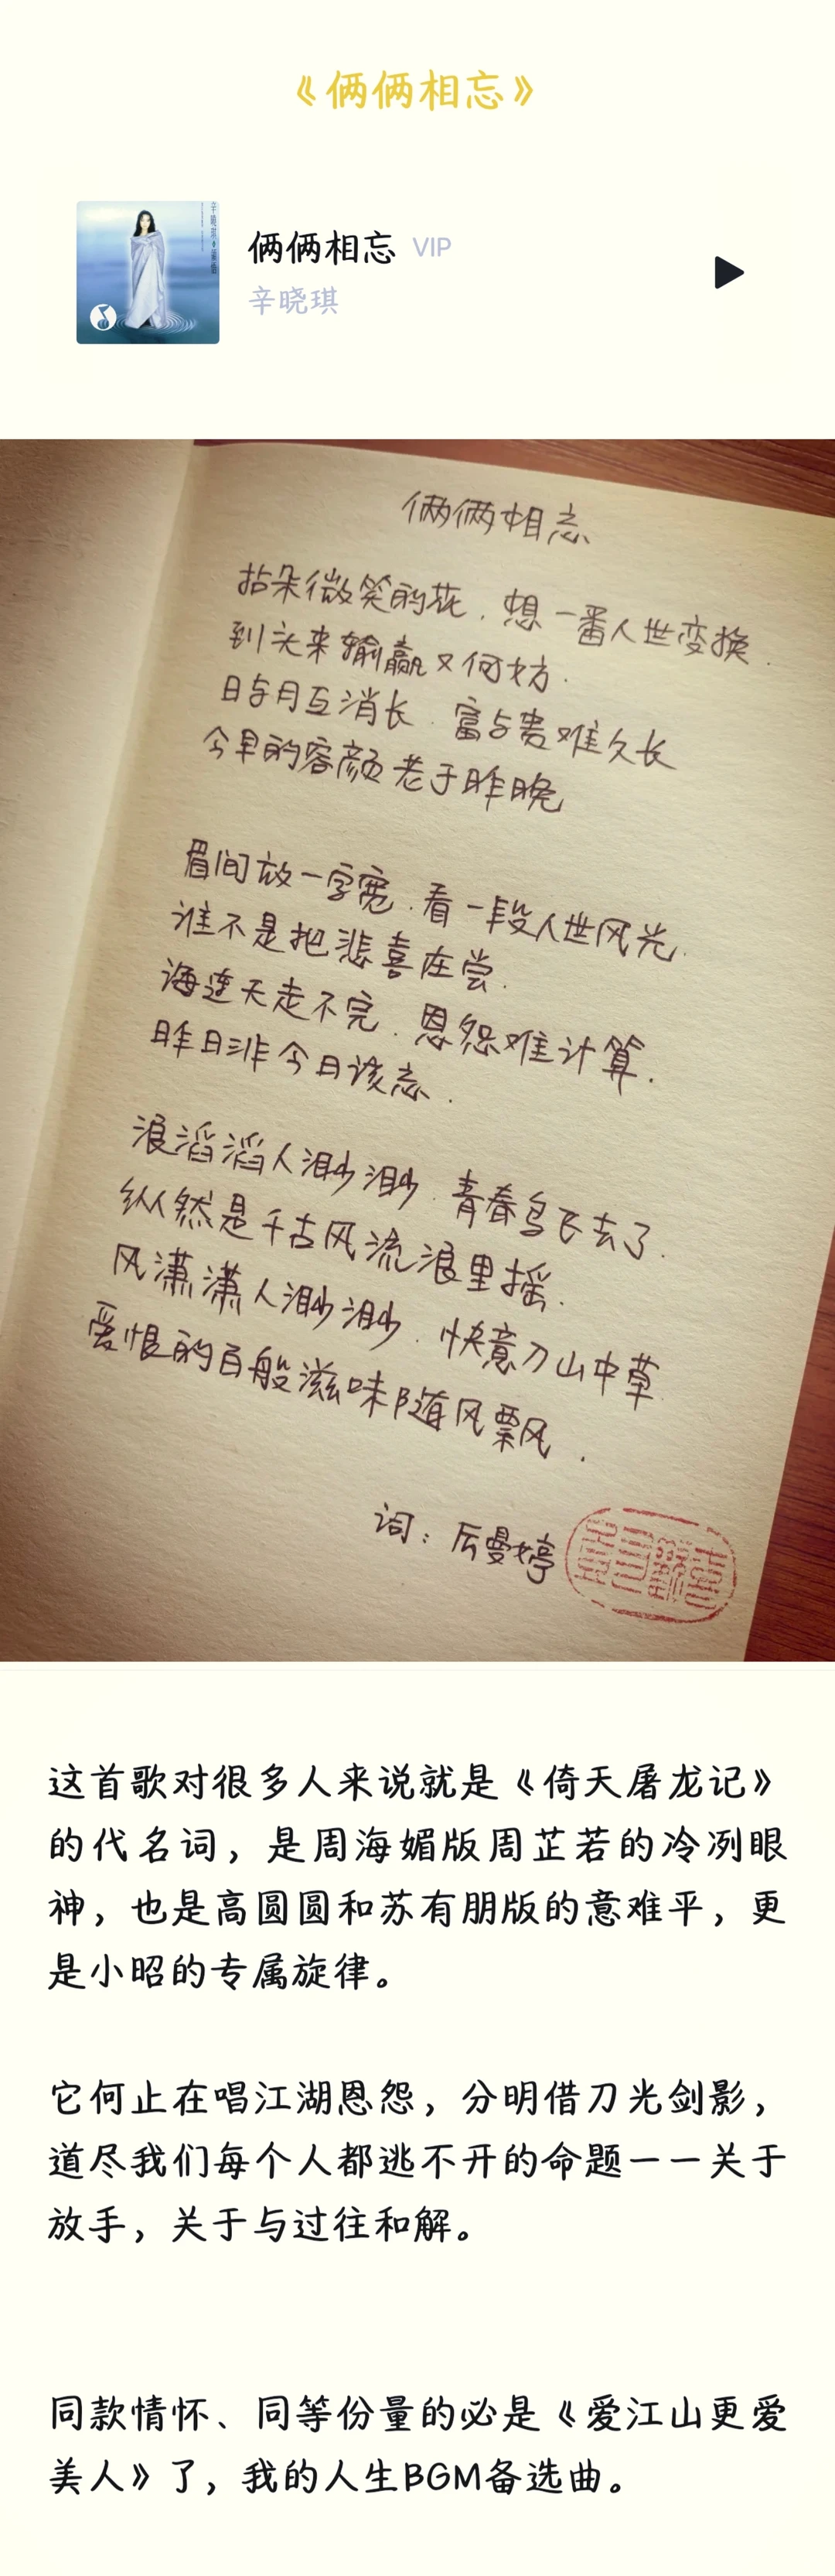 《俩俩相忘》
俩俩相忘 VIP
辛晓琪
俩俩相忘
拈朵微笑的花.想一番人世变换.
到头来输赢又何妨.
日与月互消长.富与贵难久长
今早的容颜老于昨晚
眉间放一字宽.看一段人世风光.
谁不是把悲喜在尝.
海连天走不完.恩怨难计算.
昨日非今日该忘.
浪滔滔人渺渺.青春鸟飞去了.
纵然是千古风流浪里摇.
风潇潇人渺渺.快意刀山中草.
爱恨的百般滋味随风飘.
词:厉曼婷
这首歌对很多人来说就是《倚天屠龙记》
的代名词，是周海媚版周芷若的冷冽眼
神，也是高圆圆和苏有朋版的意难平，更
是小昭的专属旋律。
它何止在唱江湖恩怨，分明借刀光剑影，
道尽我们每个人都逃不开的命题一一关于
放手，关于与过往和解。
同款情怀、同等份量的必是《爱江山更爱
美人》了，我的人生BGM备选曲。